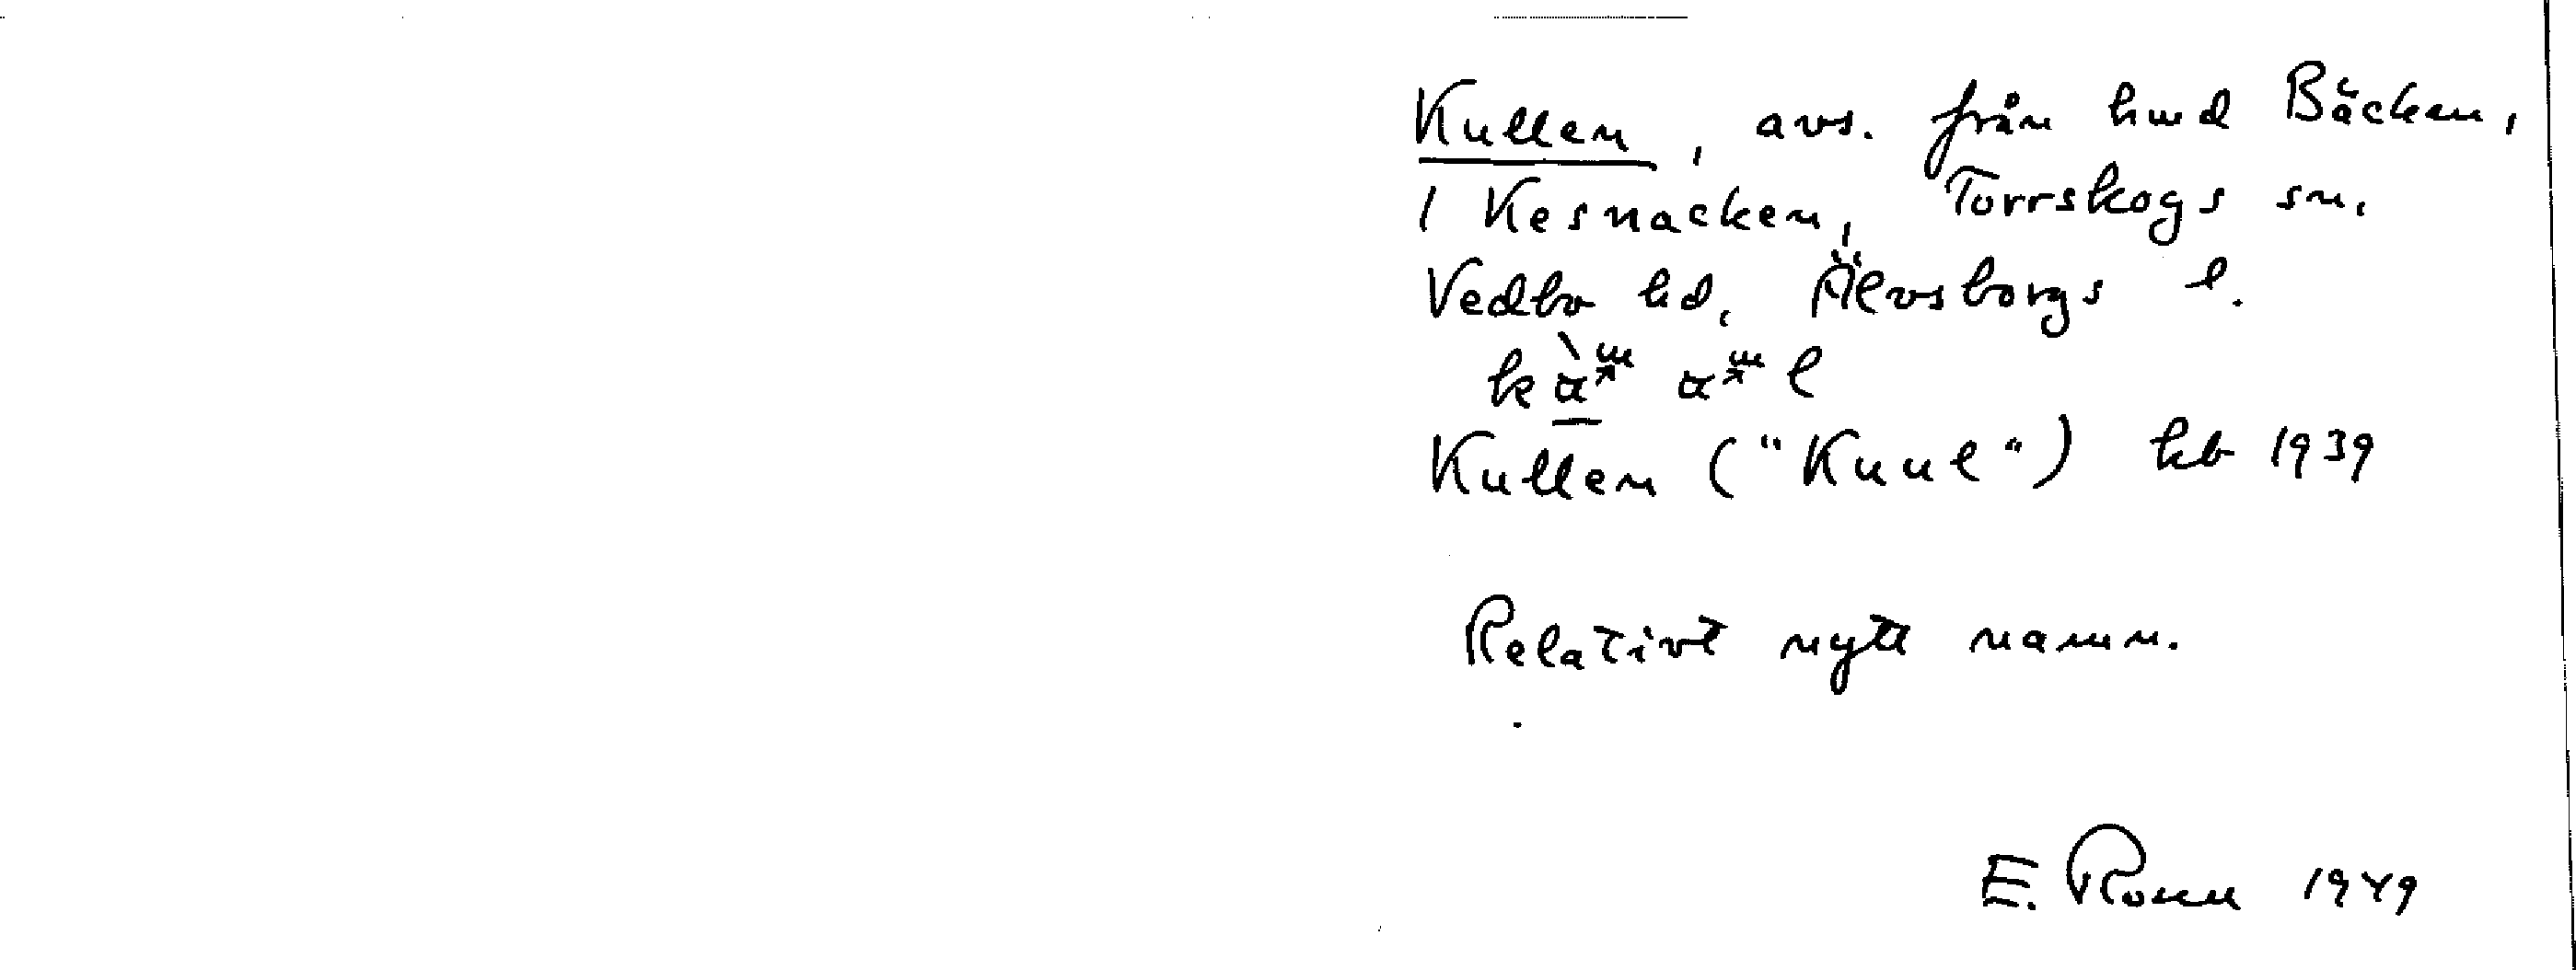 Kullen, avs. från hmd Bäcken,
1 Kesnacken, Torrskogs sn,
Vedbo hd, Älvsborgs l.
Kullen ("Kuul") kb 1939
Relativt nytt namn.
E. Rosén 1949